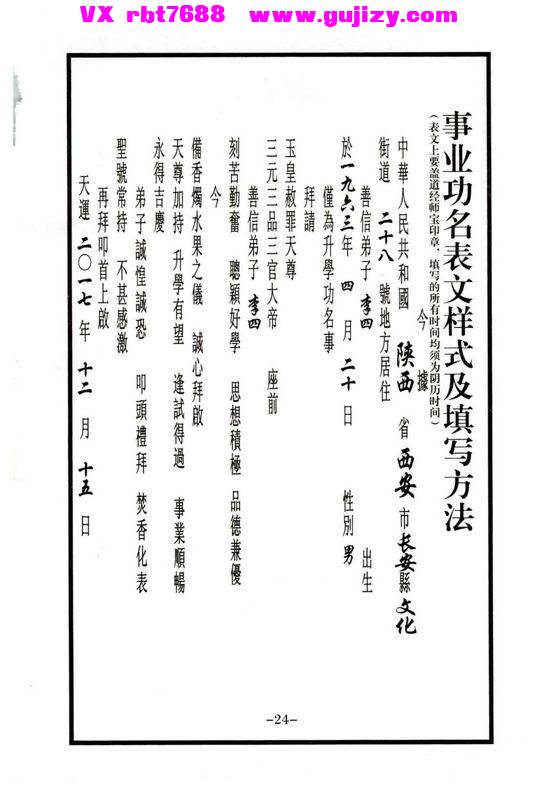 VX rbt7688    www.gujizy.com
事业功名表文样式及填写方法
（表文上要盖道经师宝印章、填写的所有时间均须为阴历时间）
今據
中華人民共和國 陕西 省 西安 市 长安 縣 文化
街道 二十八 號地方居住
善信弟子 李四 出生
於一九六三年 四 月 二十 日 性別 男
僅為升學功名事
拜請
玉皇赦罪天尊
三元三品三官大帝 座前
善信弟子 李四
刻苦勤奮 聰穎好學 思想積極 品德兼優
今
備香燭水果之儀 誠心拜啟
天尊加持 升學有望 逢試得過 事業順暢
永得吉慶
弟子誠惶誠恐 叩頭禮拜 焚香化表
聖號常持 不甚感激
再拜叩首上啟
天運 二〇一七 年 十二 月 十五 日
-24-